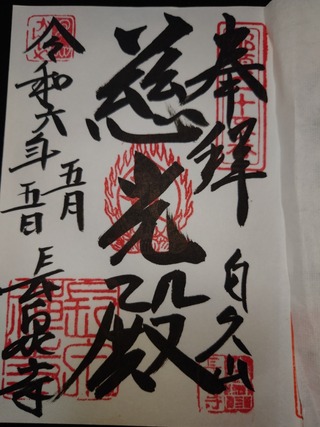 奉拝
白久山
慈光殿
令和六年五月
五日
長泉寺